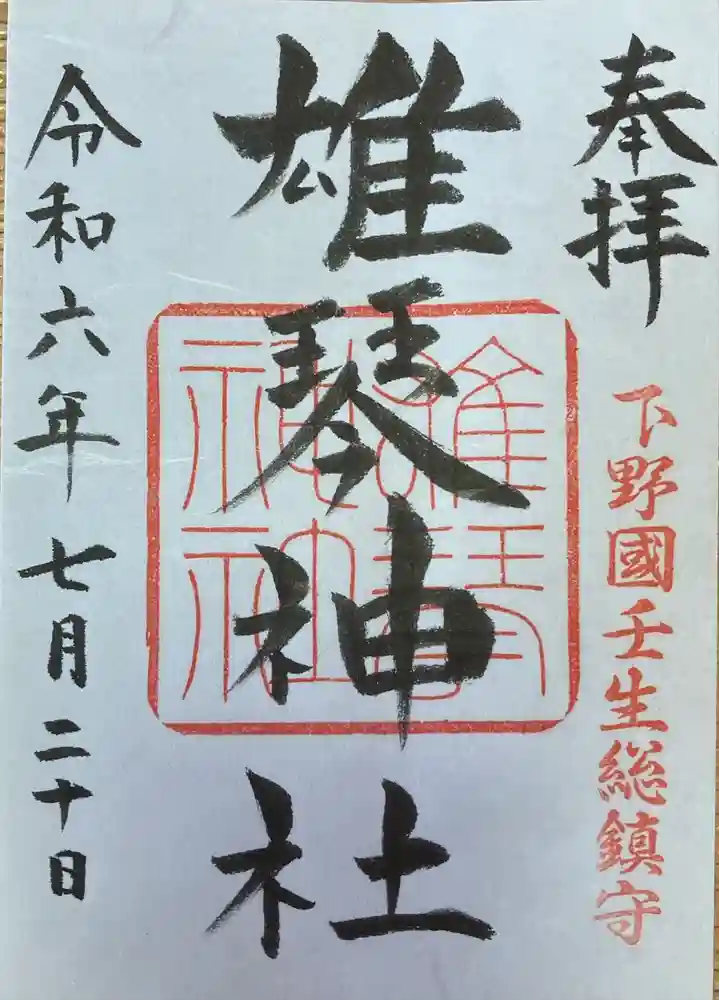 奉拝
下野國壬生総鎮守
雄琴神社
雄琴
神社
令和六年七月二十日